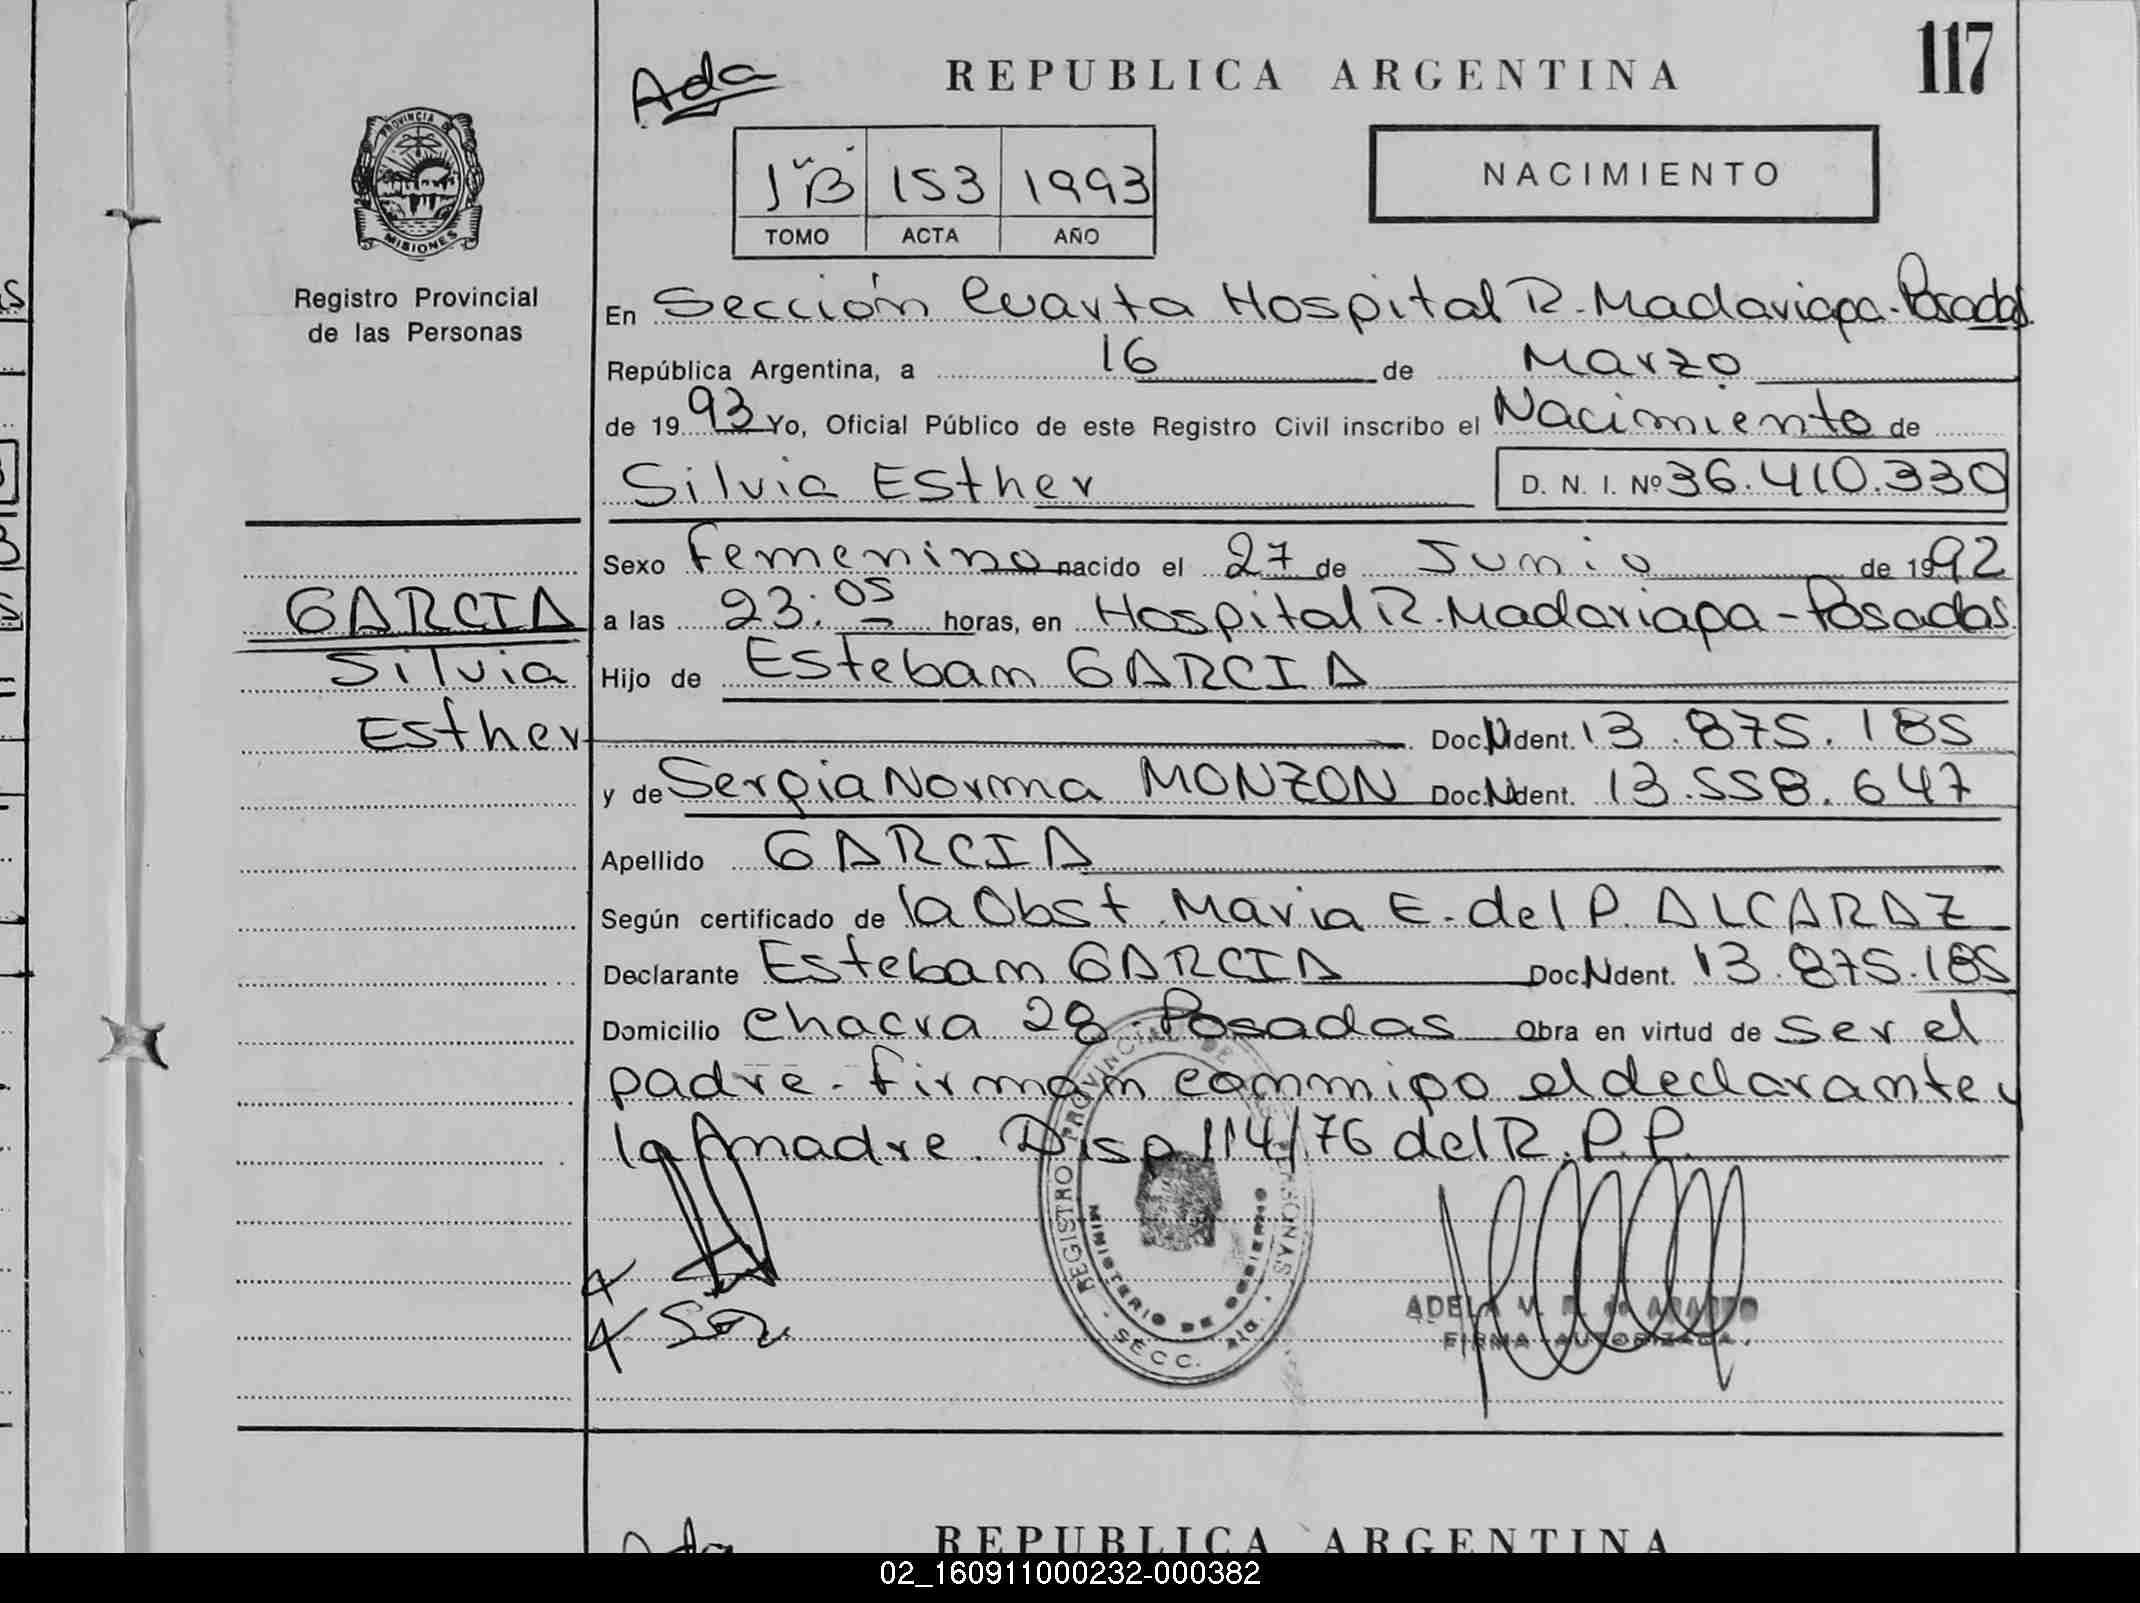 117
Ada
REPUBLICA ARGENTINA
PROVINCIA DE
MISIONES
Registro Provincial
de las Personas
1º"B" 153 1993
TOMO ACTA AÑO
NACIMIENTO
En Sección Cuarta Hospital R. Madariaga - Posadas
República Argentina, a 16 de Marzo
de 1993 Yo, Oficial Público de este Registro Civil inscribo el Nacimiento de
Silvia Esther D. N. I. Nº 36.410.330
Sexo Femenino nacido el 27 de Junio de 1992
GARCIA
Silvia
Esther
a las 23:05 horas, en Hospital R. Madariaga - Posadas
Hijo de Esteban GARCIA
Doc. N Ident. 13.875.185
y de Sergia Norma MONZON Doc. N Ident. 13.558.647
Apellido GARCIA
Según certificado de la Obst. Maria E. del P. ALCARAZ
Declarante Esteban GARCIA Doc. N Ident. 13.875.185
Domicilio Chacra 28 - Posadas Obra en virtud de ser el
padre - Firman conmigo el declarante y
la madre. Disp 114/76 del R.P.P.
REGISTRO PROVINCIAL DE PERSONAS
MINISTERIO DE GOBIERNO
SECC.
ADELA V. de
FIRMA AUTORIZADA
REPUBLICA ARGENTINA
02_160911000232-000382